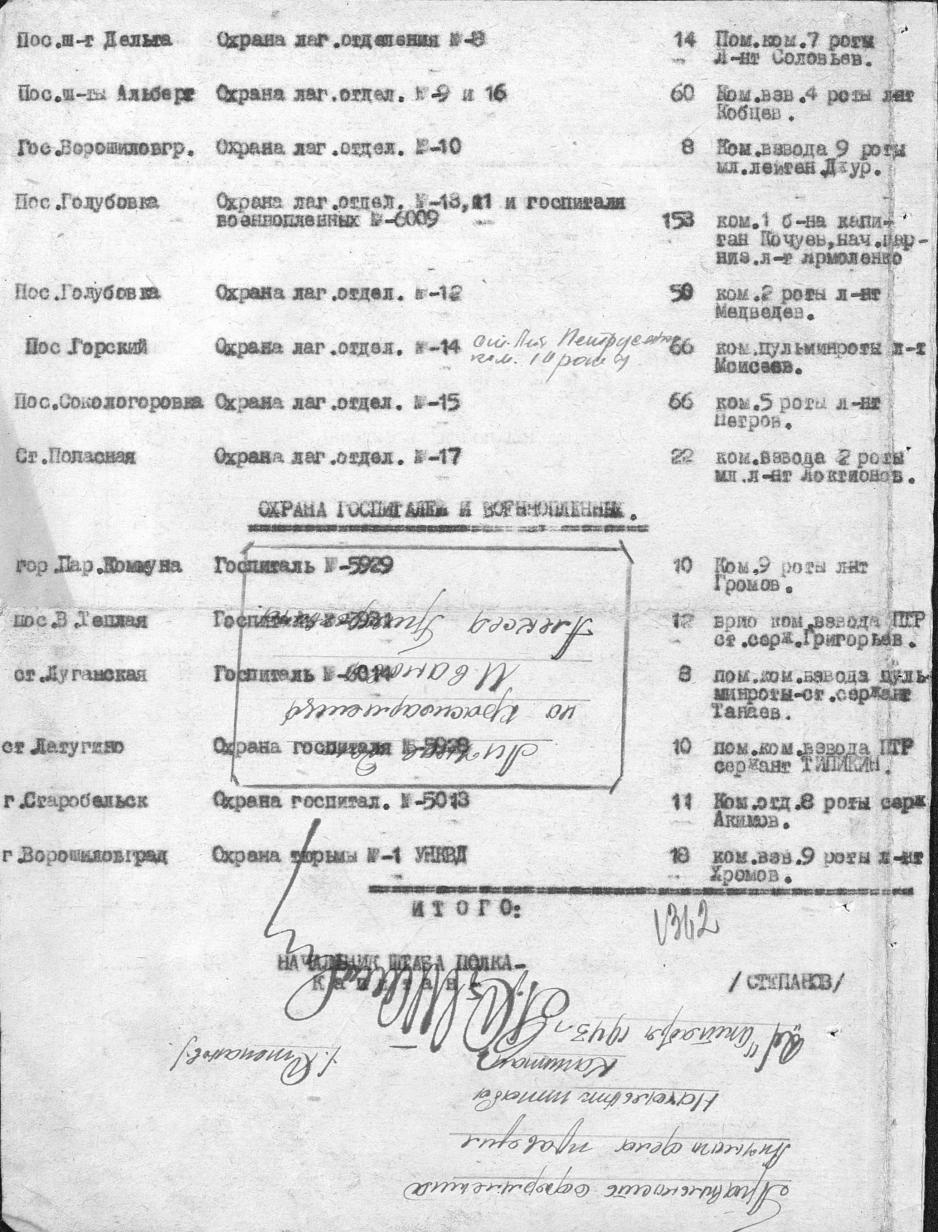 Пос.ш-т Дельта Охрана лаг.отделения №-8 14 Пом.ком.7 роты
Л-нт Соловьев.
Пос.ш-ты Альберт Охрана лаг.отдел. №-9 и 16 60 Ком.взв.4 роты лнт
Кобцев.
Гос.Ворошиловгр. Охрана лаг.отдел. №-10 8 Ком.взвода 9 роты
мл.лейтен.Джур.
Пос.Голубовка Охрана лаг.отдел. №-13,11 и госпиталя
военнопленных №-6009 153 ком.1 б-на капи-
тан Кочуев,нач.гар-
низ.л-т Ярмоленко
Пос.Голубовка Охрана лаг.отдел. №-12 50 ком.2 роты л-нт
Медведев.
Пос.Горский Охрана лаг.отдел. №-14 66 ком.пульминроты л-т
ком. 10 роты
Моисеев.
Пос.Сокологоровка Охрана лаг.отдел. №-15 66 ком.5 роты л-нт
Петров.
Ст.Попасная Охрана лаг.отдел. №-17 22 ком.взвода 2 роты
мл.л-нт Локтионов.
ОХРАНА ГОСПИТАЛЕЙ И ВОЕННОПЛЕННЫХ.
гор.Пар.Коммуна Госпиталь №-5929 10 Ком.9 роты лнт
Громов.
пос.В.Теплая Госпиталь 12 врио ком.взвода ПТР
ст.серж.Григорьев.
ст.Луганская Госпиталь №-6014 8 пом.ком.взвода пуль-
минроты-ст.сержант
Танаев.
ст Латугино Охрана госпиталя №-5929 10 пом.ком.взвода ПТР
сержант ТИПИКИН.
г.Старобельск Охрана госпитал. №-5013 11 Ком.отд.8 роты серж
Акимов.
г.Ворошиловград Охрана тюрьмы №-1 УНКВД 18 ком.взв.9 роты л-нт
Хромов.
ИТОГО:
1362
НАЧАЛЬНИК ШТАБА ПОЛКА-
капитан- /СТЕПАНОВ/
Правильность оформления
Личного дела проверил
Начальник штаба
Капитан
(Степанов).
1943 г
Личное дело
на красноармейца
Иванов
Алексей